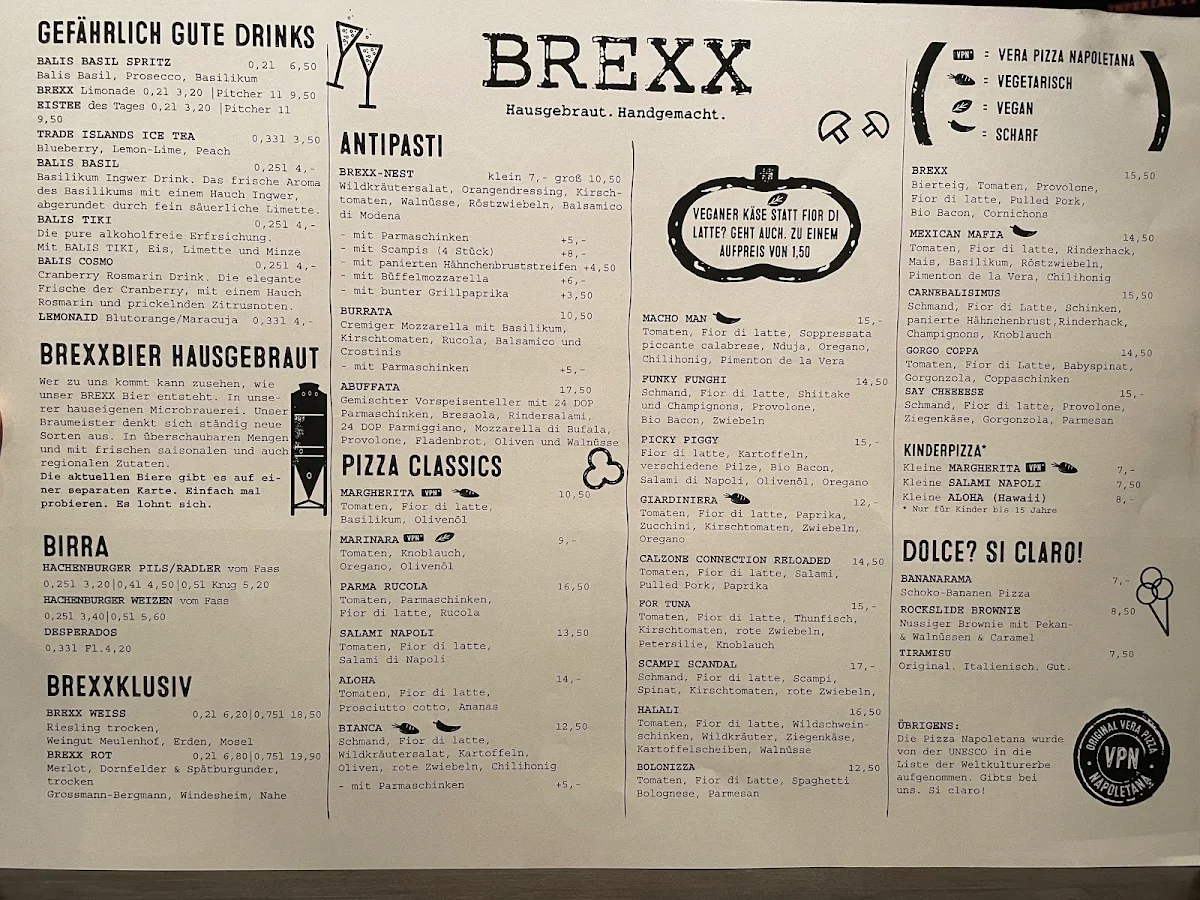 GEFÄHRLICH GUTE DRINKS
BALIS BASIL SPRITZ 0,2l 6,50
Balis Basil, Prosecco, Basilikum
BREXX Limonade 0,2l 3,20 |Pitcher 1l 9,50
EISTEE des Tages 0,2l 3,20 |Pitcher 1l
9,50
TRADE ISLANDS ICE TEA 0,33l 3,50
Blueberry, Lemon-Lime, Peach
BALIS BASIL 0,25l 4,-
Basilikum Ingwer Drink. Das frische Aroma
des Basilikums mit einem Hauch Ingwer,
abgerundet durch fein säuerliche Limette.
BALIS TIKI 0,25l 4,-
Die pure alkoholfreie Erfrsichung.
Mit BALIS TIKI, Eis, Limette und Minze
BALIS COSMO 0,25l 4,-
Cranberry Rosmarin Drink. Die elegante
Frische der Cranberry, mit einem Hauch
Rosmarin und prickelnden Zitrusnoten.
LEMONAID Blutorange/Maracuja 0,33l 4,-
BREXXBIER HAUSGEBRAUT
Wer zu uns kommt kann zusehen, wie
unser BREXX Bier entsteht. In unse-
rer hauseigenen Microbrauerei. Unser
Braumeister denkt sich ständig neue
Sorten aus. In überschaubaren Mengen
und mit frischen saisonalen und auch
regionalen Zutaten.
Die aktuellen Biere gibt es auf ei-
ner separaten Karte. Einfach mal
probieren. Es lohnt sich.
BIRRA
HACHENBURGER PILS/RADLER vom Fass
0,25l 3,20|0,4l 4,50|0,5l Krug 5,20
HACHENBURGER WEIZEN vom Fass
0,25l 3,40|0,5l 5,60
DESPERADOS
0,33l Fl.4,20
BREXXKLUSIV
BREXX WEISS 0,2l 6,20|0,75l 18,50
Riesling trocken,
Weingut Meulenhof, Erden, Mosel
BREXX ROT 0,2l 6,80|0,75l 19,90
Merlot, Dornfelder & Spätburgunder,
trocken
Grossmann-Bergmann, Windesheim, Nahe
BREXX
Hausgebraut. Handgemacht.
ANTIPASTI
BREXX-NEST klein 7,- groß 10,50
Wildkräutersalat, Orangendressing, Kirsch-
tomaten, Walnüsse, Röstzwiebeln, Balsamico
di Modena
- mit Parmaschinken +5,-
- mit Scampis (4 Stück) +8,-
- mit panierten Hähnchenbruststreifen +4,50
- mit Büffelmozzarella +6,-
- mit bunter Grillpaprika +3,50
BURRATA 10,50
Cremiger Mozzarella mit Basilikum,
Kirschtomaten, Rucola, Balsamico und
Crostinis
- mit Parmaschinken +5,-
ABUFFATA 17,50
Gemischter Vorspeisenteller mit 24 DOP
Parmaschinken, Bresaola, Rindersalami,
24 DOP Parmiggiano, Mozzarella di Bufala,
Provolone, Fladenbrot, Oliven und Walnüsse
PIZZA CLASSICS
MARGHERITA VPN 10,50
Tomaten, Fior di latte,
Basilikum, Olivenöl
MARINARA VPN 9,-
Tomaten, Knoblauch,
Oregano, Olivenöl
PARMA RUCOLA 16,50
Tomaten, Parmaschinken,
Fior di latte, Rucola
SALAMI NAPOLI 13,50
Tomaten, Fior di latte,
Salami di Napoli
ALOHA 14,-
Tomaten, Fior di latte,
Prosciutto cotto, Ananas
BIANCA 12,50
Schmand, Fior di latte,
Wildkräutersalat, Kartoffeln,
Oliven, rote Zwiebeln, Chilihonig
- mit Parmaschinken +5,-
VEGANER KÄSE STATT FIOR DI
LATTE? GEHT AUCH. ZU EINEM
AUFPREIS VON 1,50
MACHO MAN 15,-
Tomaten, Fior di latte, Soppressata
piccante calabrese, Nduja, Oregano,
Chilihonig, Pimenton de la Vera
FUNKY FUNGHI 14,50
Schmand, Fior di latte, Shiitake
und Champignons, Provolone,
Bio Bacon, Zwiebeln
PICKY PIGGY 15,-
Fior di latte, Kartoffeln,
verschiedene Pilze, Bio Bacon,
Salami di Napoli, Olivenöl, Oregano
GIARDINIERA 12,-
Tomaten, Fior di latte, Paprika,
Zucchini, Kirschtomaten, Zwiebeln,
Oregano
CALZONE CONNECTION RELOADED 14,50
Tomaten, Fior di latte, Salami,
Pulled Pork, Paprika
FOR TUNA 15,-
Tomaten, Fior di latte, Thunfisch,
Kirschtomaten, rote Zwiebeln,
Petersilie, Knoblauch
SCAMPI SCANDAL 17,-
Schmand, Fior di latte, Scampi,
Spinat, Kirschtomaten, rote Zwiebeln,
HALALI 16,50
Tomaten, Fior di latte, Wildschwein-
schinken, Wildkräuter, Ziegenkäse,
Kartoffelscheiben, Walnüsse
BOLONIZZA 12,50
Tomaten, Fior di Latte, Spaghetti
Bolognese, Parmesan
VPN = VERA PIZZA NAPOLETANA
= VEGETARISCH
= VEGAN
= SCHARF
BREXX 15,50
Bierteig, Tomaten, Provolone,
Fior di latte, Pulled Pork,
Bio Bacon, Cornichons
MEXICAN MAFIA 14,50
Tomaten, Fior di latte, Rinderhack,
Mais, Basilikum, Röstzwiebeln,
Pimenton de la Vera, Chilihonig
CARNEBALISIMUS 15,50
Schmand, Fior di Latte, Schinken,
panierte Hähnchenbrust,Rinderhack,
Champignons, Knoblauch
GORGO COPPA 14,50
Tomaten, Fior di Latte, Babyspinat,
Gorgonzola, Coppaschinken
SAY CHEEEESE 15,-
Schmand, Fior di latte, Provolone,
Ziegenkäse, Gorgonzola, Parmesan
KINDERPIZZA*
Kleine MARGHERITA VPN 7,-
Kleine SALAMI NAPOLI 7,50
Kleine ALOHA (Hawaii) 8,-
* Nur für Kinder bis 15 Jahre
DOLCE? SI CLARO!
BANANARAMA 7,-
Schoko-Bananen Pizza
ROCKSLIDE BROWNIE 8,50
Nussiger Brownie mit Pekan-
& Walnüssen & Caramel
TIRAMISU 7,50
Original. Italienisch. Gut.
ÜBRIGENS:
Die Pizza Napoletana wurde
von der UNESCO in die
Liste der Weltkulturerbe
aufgenommen. Gibts bei
uns. Si claro!
ORIGINAL VERA PIZZA
VPN
NAPOLETANA